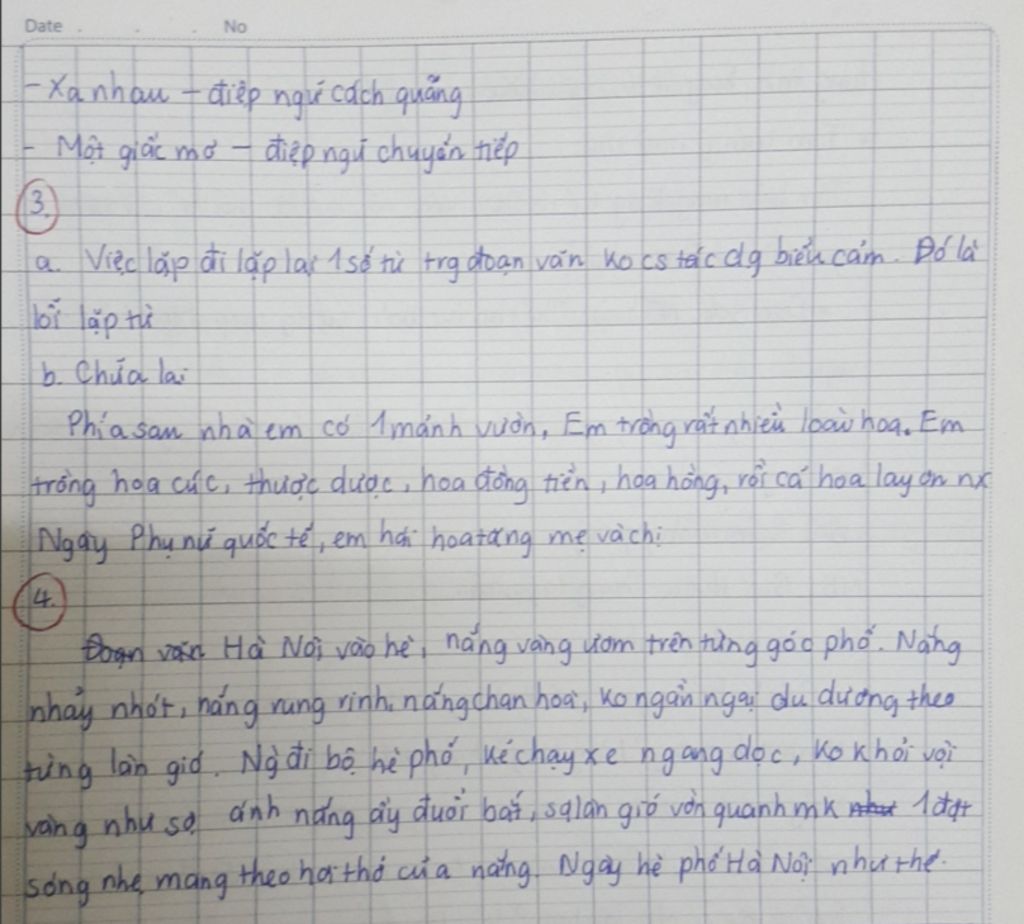 Date . . . No
- Xa nhau - điệp ngữ cách quãng
- Một giấc mơ - điệp ngữ chuyển tiếp
3.
a. Việc lặp đi lặp lại 1 số từ trg đoạn văn ko cs tác dg biểu cảm. Đó là
lỗi lặp từ
b. Chữa lại
Phía sau nhà em có 1 mảnh vườn, Em trồng rất nhiều loài hoa. Em
trồng hoa cúc, thược dược, hoa đồng tiền, hoa hồng, rồi cả hoa lay ơn nx
Ngày Phụ nữ quốc tế, em hái hoa tặng mẹ và chị
4.
Đoạn văn Hà Nội vào hè, nắng vàng ươm trên từng góc phố. Nắng
nhảy nhót, nắng rung rinh, nắng chan hoà, ko ngần ngại du dương theo
từng làn gió. Ng đi bộ hè phố, kẻ chạy xe ngang dọc, ko khỏi vội
vàng như sợ ánh nắng ấy đuổi bắt, sợ làn gió vờn quanh mk như 1 đợt
sóng nhẹ mang theo hơi thở của nắng. Ngày hè phố Hà Nội như thế.